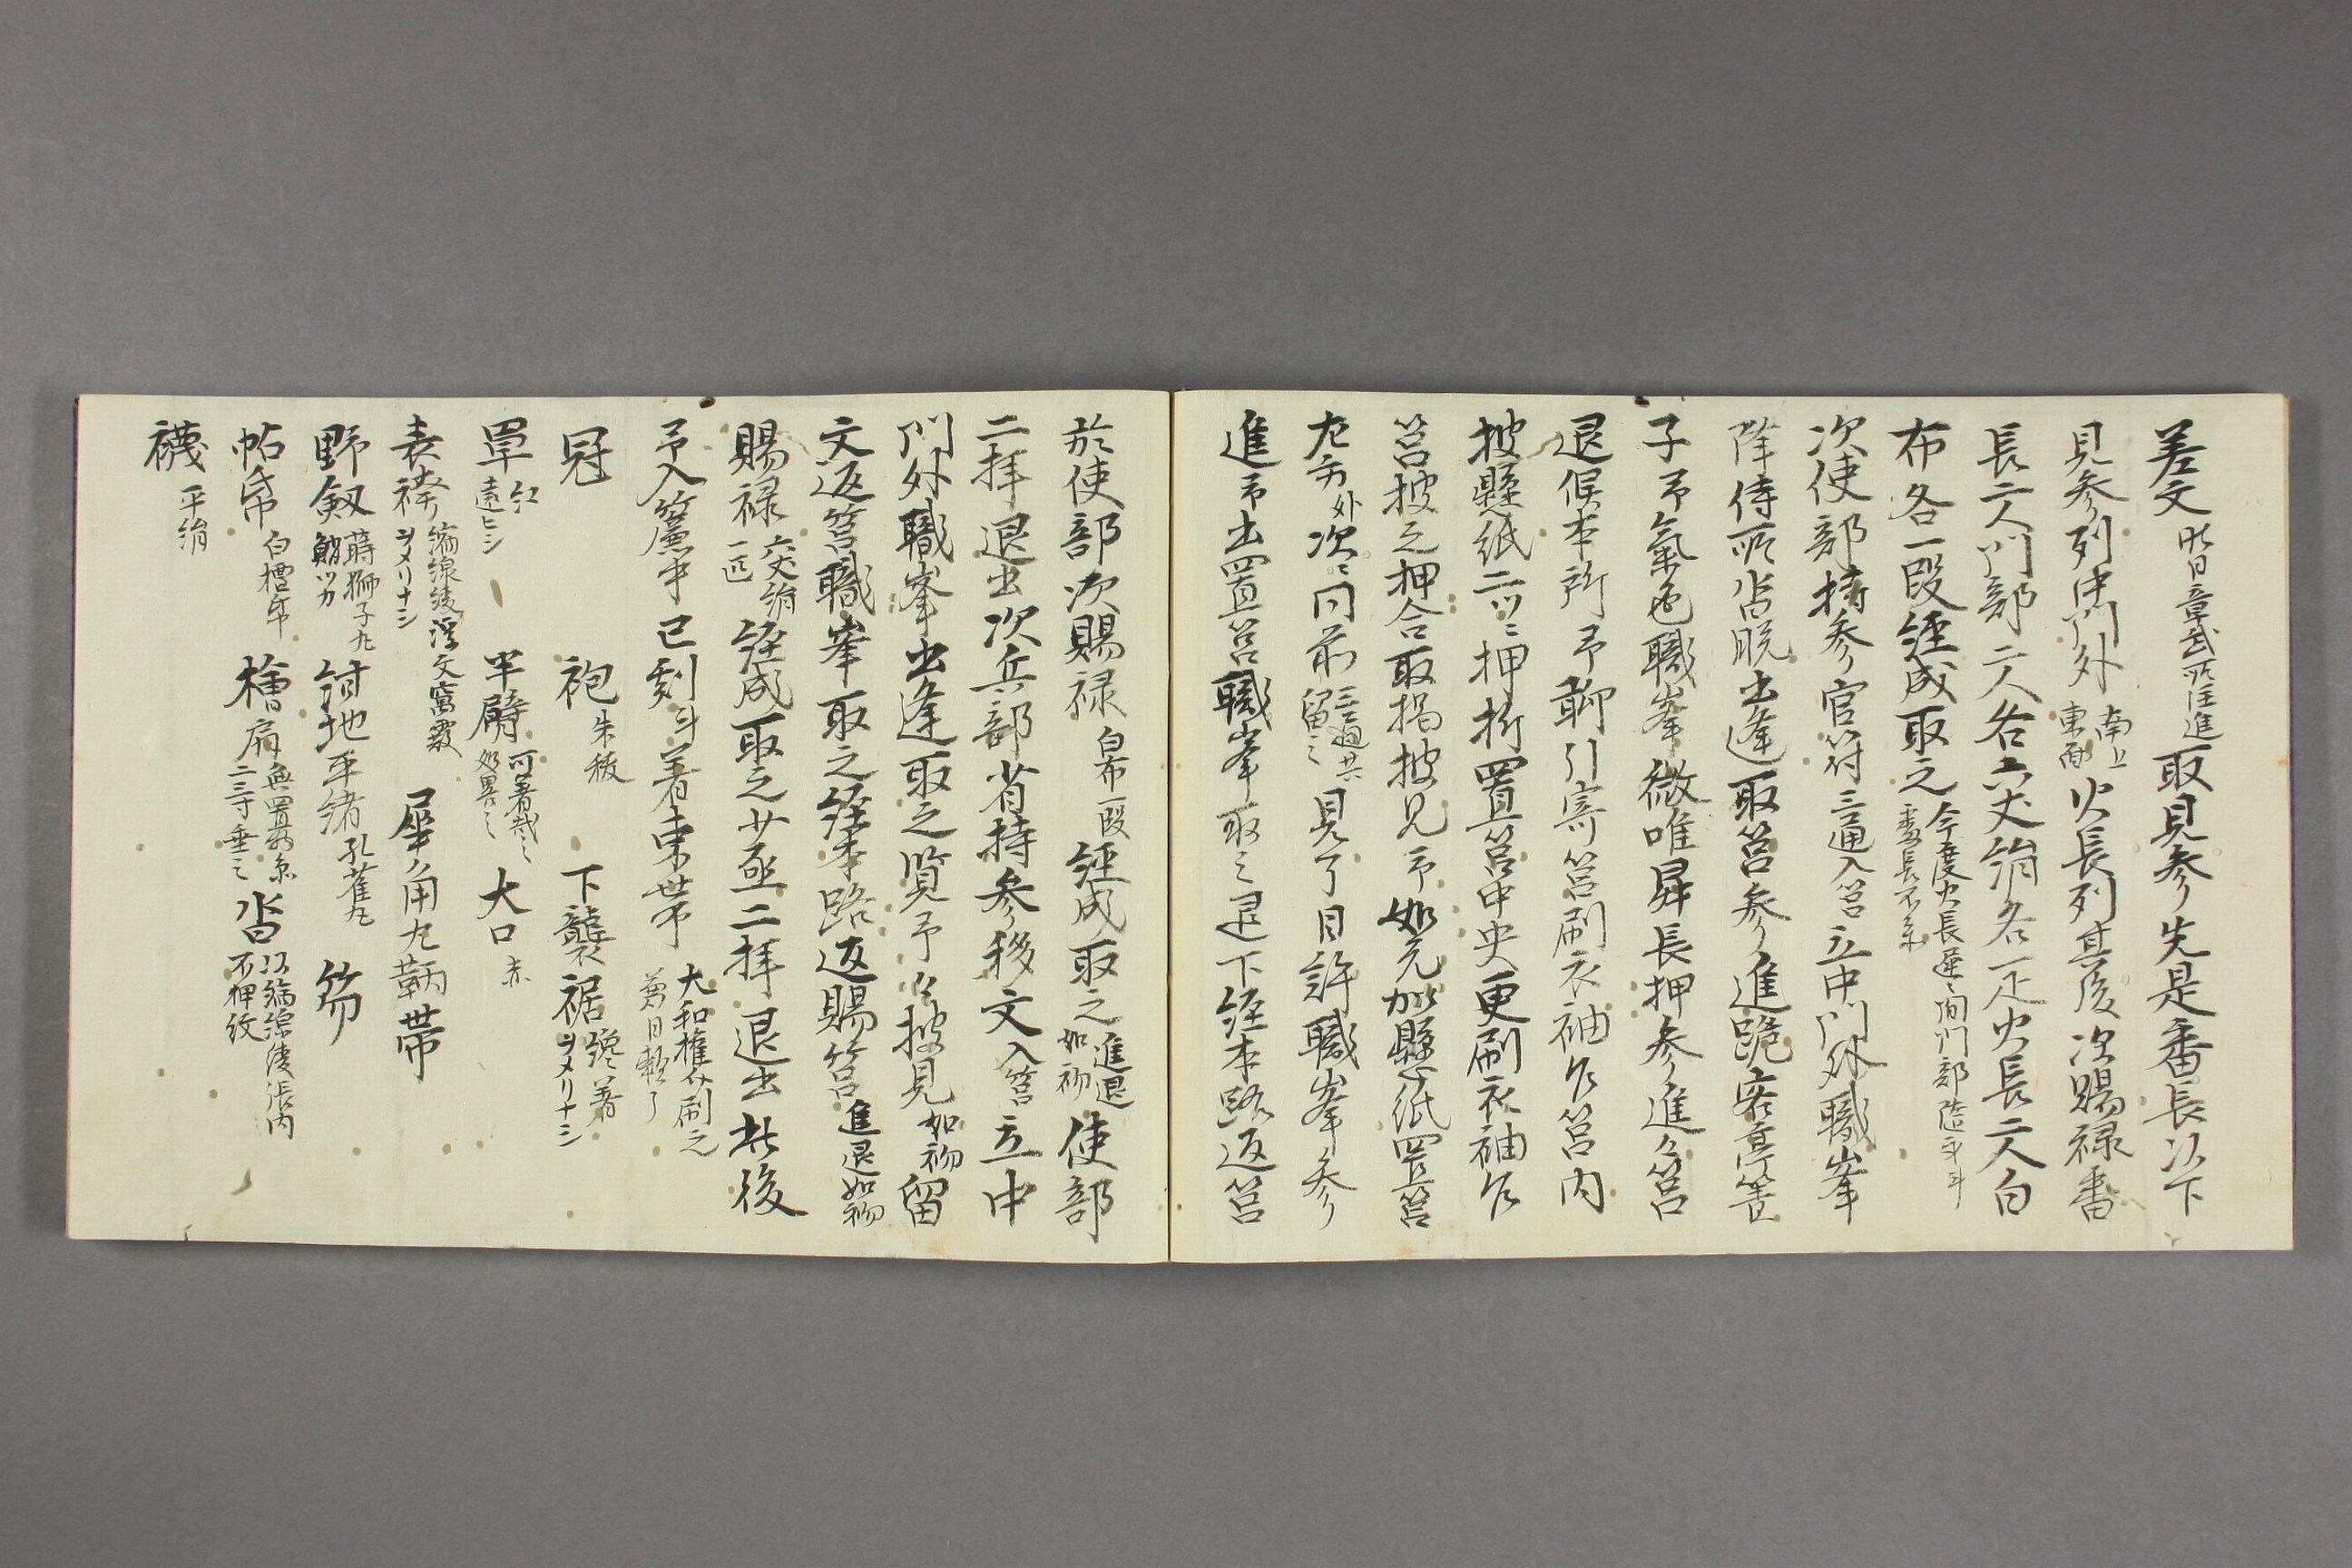 差文 昨日章武所注進 取見参先是番長以下
見参列中門外 南上東面 火長列其後次賜禄番
長二人門部二人各六丈絹各一疋火長二人白
布各一段経成取之 今度火長遅〻間門部 番長不参
次使部持参官符 三通入筥 立中門外職峯
降侍所沓脱出逢取筥参進跪客亭簀
子予気色職峯微唯昇長押参進久筥
退候本所予聊引寄筥刷衣袖乍筥内
披懸紙二ツニ押折置筥中央更刷衣袖乍
筥披之押合取揚披見了如元加懸紙置筥
左方 外 次〻同前 三通共留之 見了目許職峯参
進予出置筥職峯取之退下経本路返筥
於使部次賜禄 白布一段 経成取之 進退如初 使部
二拝退出次兵部省持参移文 入筥 立中
門外職峯出逢取之覧予〻披見 如初 留
文返筥職峯取之経本路返賜筥 進退如初
賜禄 六丈絹一疋 経成取之省丞二拝退出此後
予入簾中巳刻斗着束帯 大和権介刷之 前日触了
冠 袍 朱紱 下襲裾 纔着 ヲメリナシ
単 紅 遠ヒシ 半臂 可着哉之処畧之 大口 赤
表袴 ヲメリナシ 浮文窠霰 犀ノ角丸鞆帯
野釼 蒔獅子丸 紺地平緒 孔雀丸 笏
帖帋 白檀帋 檜扇 無置物糸 二三寸垂之 沓 以綾張内 不押紋
襪 平絹